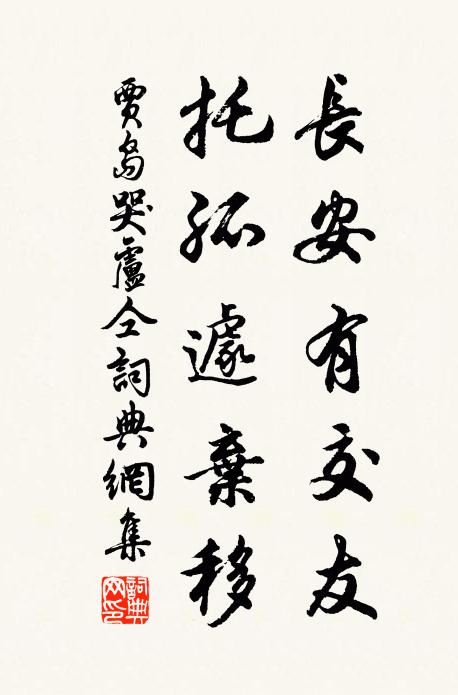 長安有交友
托孤遽棄移
賈島哭盧仝詞典網集
詞典網印